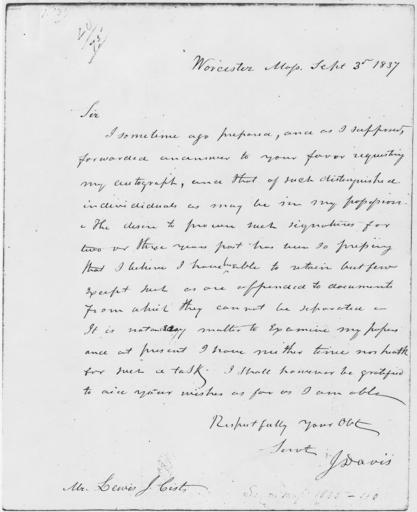 Worcester Mass. Sept 3d 1837
Sir
I sometime ago prepared, and as I supposed,
forwarded an answer to your favor requesting
my autograph, and that of such distinguished
individuals as may be in my possession.
The desire to procure such signatures for
two or three years past has been so pressing
that I believe I have unable to retain but few
except such as are appended to documents
from which they cannot be separated.
It is not an easy matter to examine my papers
and at present I have neither time nor health
for such a task. I shall however be gratified
to aid your wishes as far as I am able
Respectfully Your Obt
Servt
J Davis
Mr. Lewis J. Cist